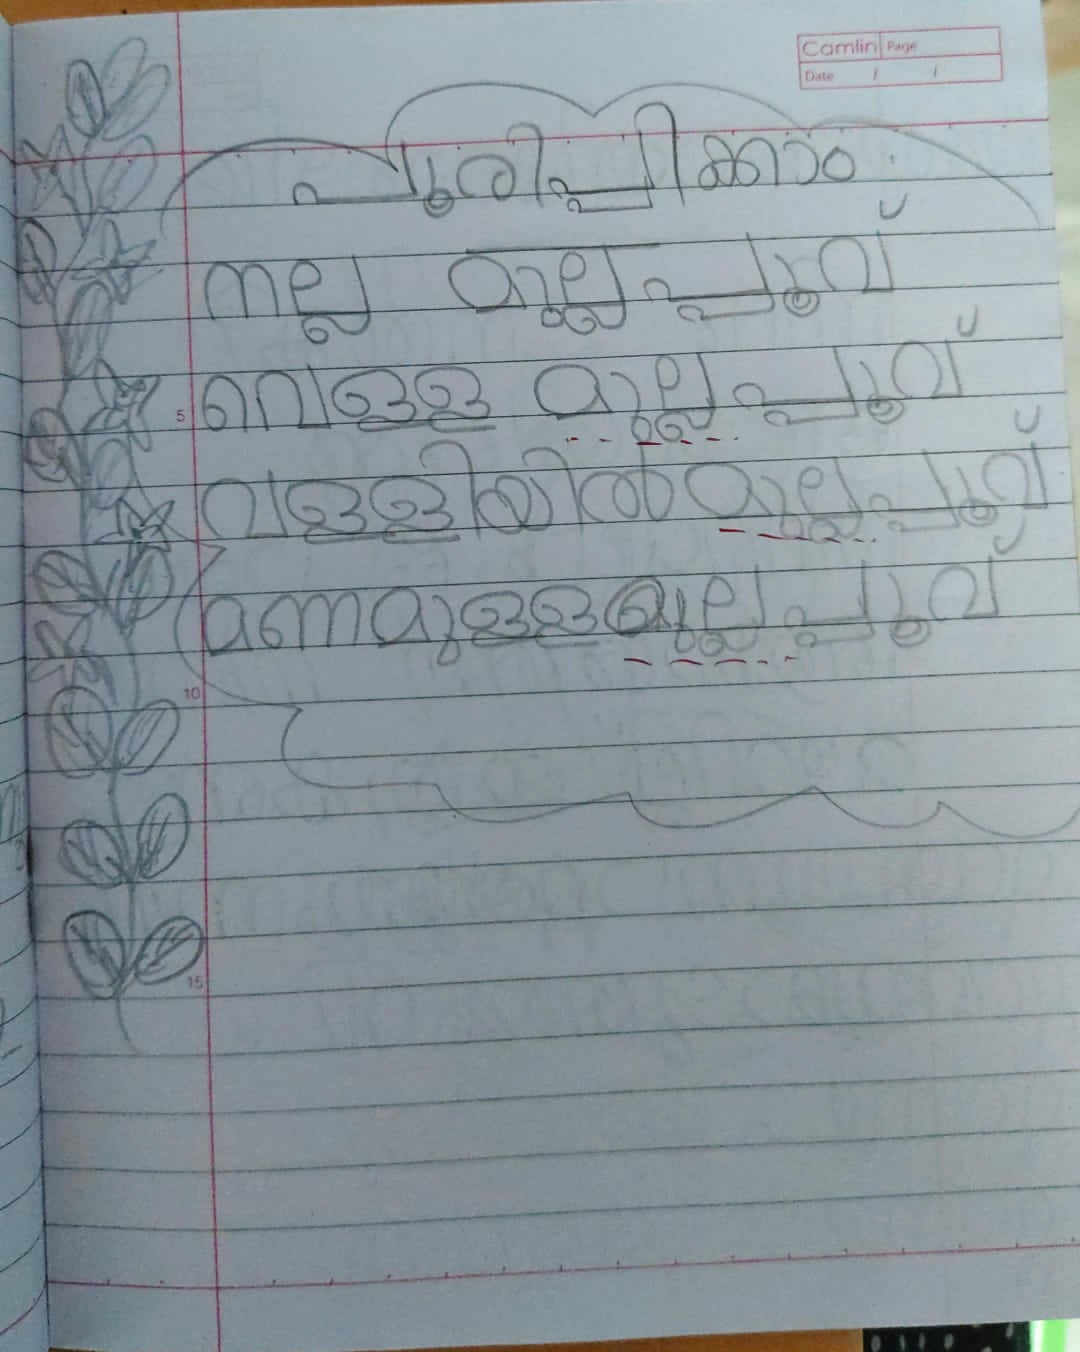 Camlin Page
Date / /
പൂരിപ്പിക്കാം.
നല്ല മുല്ലപ്പൂവ്
5
വെള്ള മുല്ലപ്പൂവ്
വള്ളിയിൽ മുല്ലപ്പൂവ്
മണമുള്ള മുല്ലപ്പൂവ്
10
15